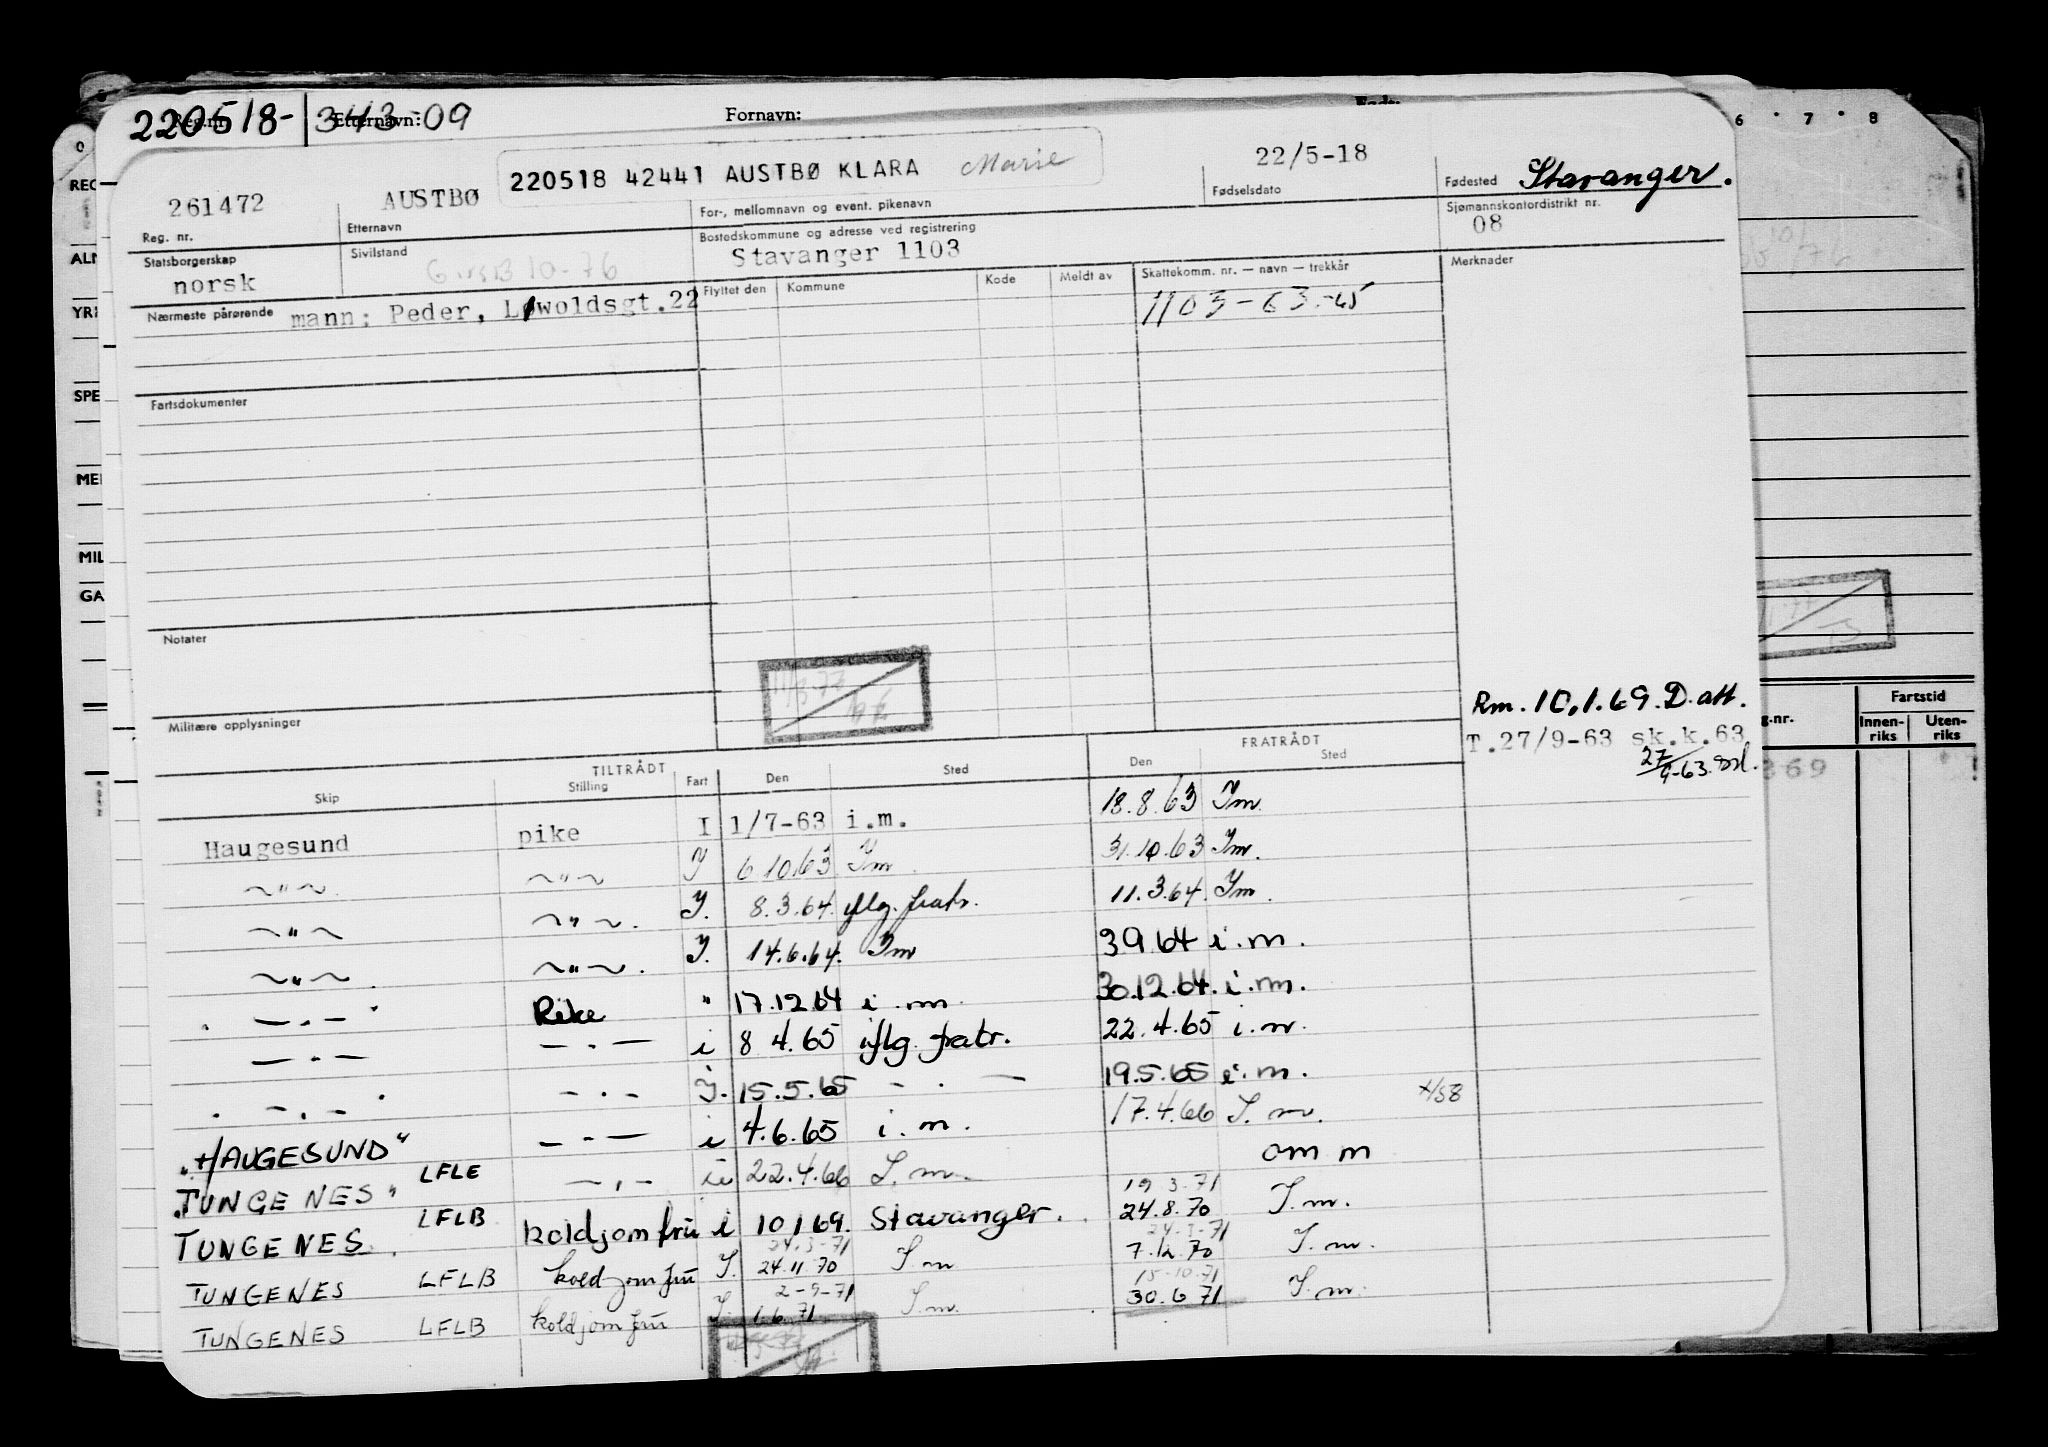 220518- 343-09
Reg.nr. Etternavn: Fornavn:
6 7 8
220518 42441 AUSTBØ KLARA Marie
261472 AUSTBØ 22/5-18 Stavanger.
Reg. nr. Etternavn For-, mellomnavn og event. pikenavn Fødselsdato Fødested
Statsborgerskap Sivilstand Bostedskommune og adresse ved registrering Sjømannskontordistrikt nr.
norsk Stavanger 1103 08
Nærmeste pårørende Flyttet den Kommune Kode Meldt av Skattekomm. nr. — navn — trekkår Merknader
mann: Peder, Løwoldsgt.22 1103-63.-65
Fartsdokumenter
Notater
Militære opplysninger
Rm. 10.1.69. D.att.
T.27/9-63 sk.k.63
27/9-63
TILTRÅDT FRATRÅDT
Skip Stilling Fart Den Sted Den Sted
Haugesund pike I 1/7-63 i.m. 18.8.63 Im.
~"~ ~"~ I 6.10.63 Im 31.10.63 Im.
~"~ ~"~. I. 8.3.64. iflg. fratr. 11.3.64. Im.
~"~. ~"~. I. 14.6.64. Im 3.9.64 i.m.
—.— Pike " 17.12.64 i.m. 30.12.64. i.m.
—.— —.— i 8.4.65 iflg. fratr. 22.4.65 i.m.
—.— —.— I. 15.5.65 —.— 19.5.65 i.m.
"HAUGESUND" —.— i 4.6.65 i.m. 17.4.66 I.m.
"TUNGENES" LFLE —.— 22.4.66 I.m. om m
TUNGENES LFLB koldjomfru i 10.1.69. Stavanger. 19.3.71 24.8.70 I.m.
TUNGENES LFLB koldjomfru I. 24.3-71 24.11.70 I.m 24.3-71 7.12.70 I.m.
TUNGENES LFLB koldjomfru I. 2-9-71 1.6.71 I.m. 15-10.71 30.6.71 I.m.
g.nr. Fartstid
Innen-riks Uten-riks
369
REG
ALM
YRK
SPE
MER
MIL
GA